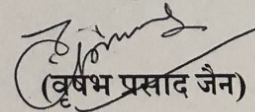 (वृषभ प्रसाद जैन)